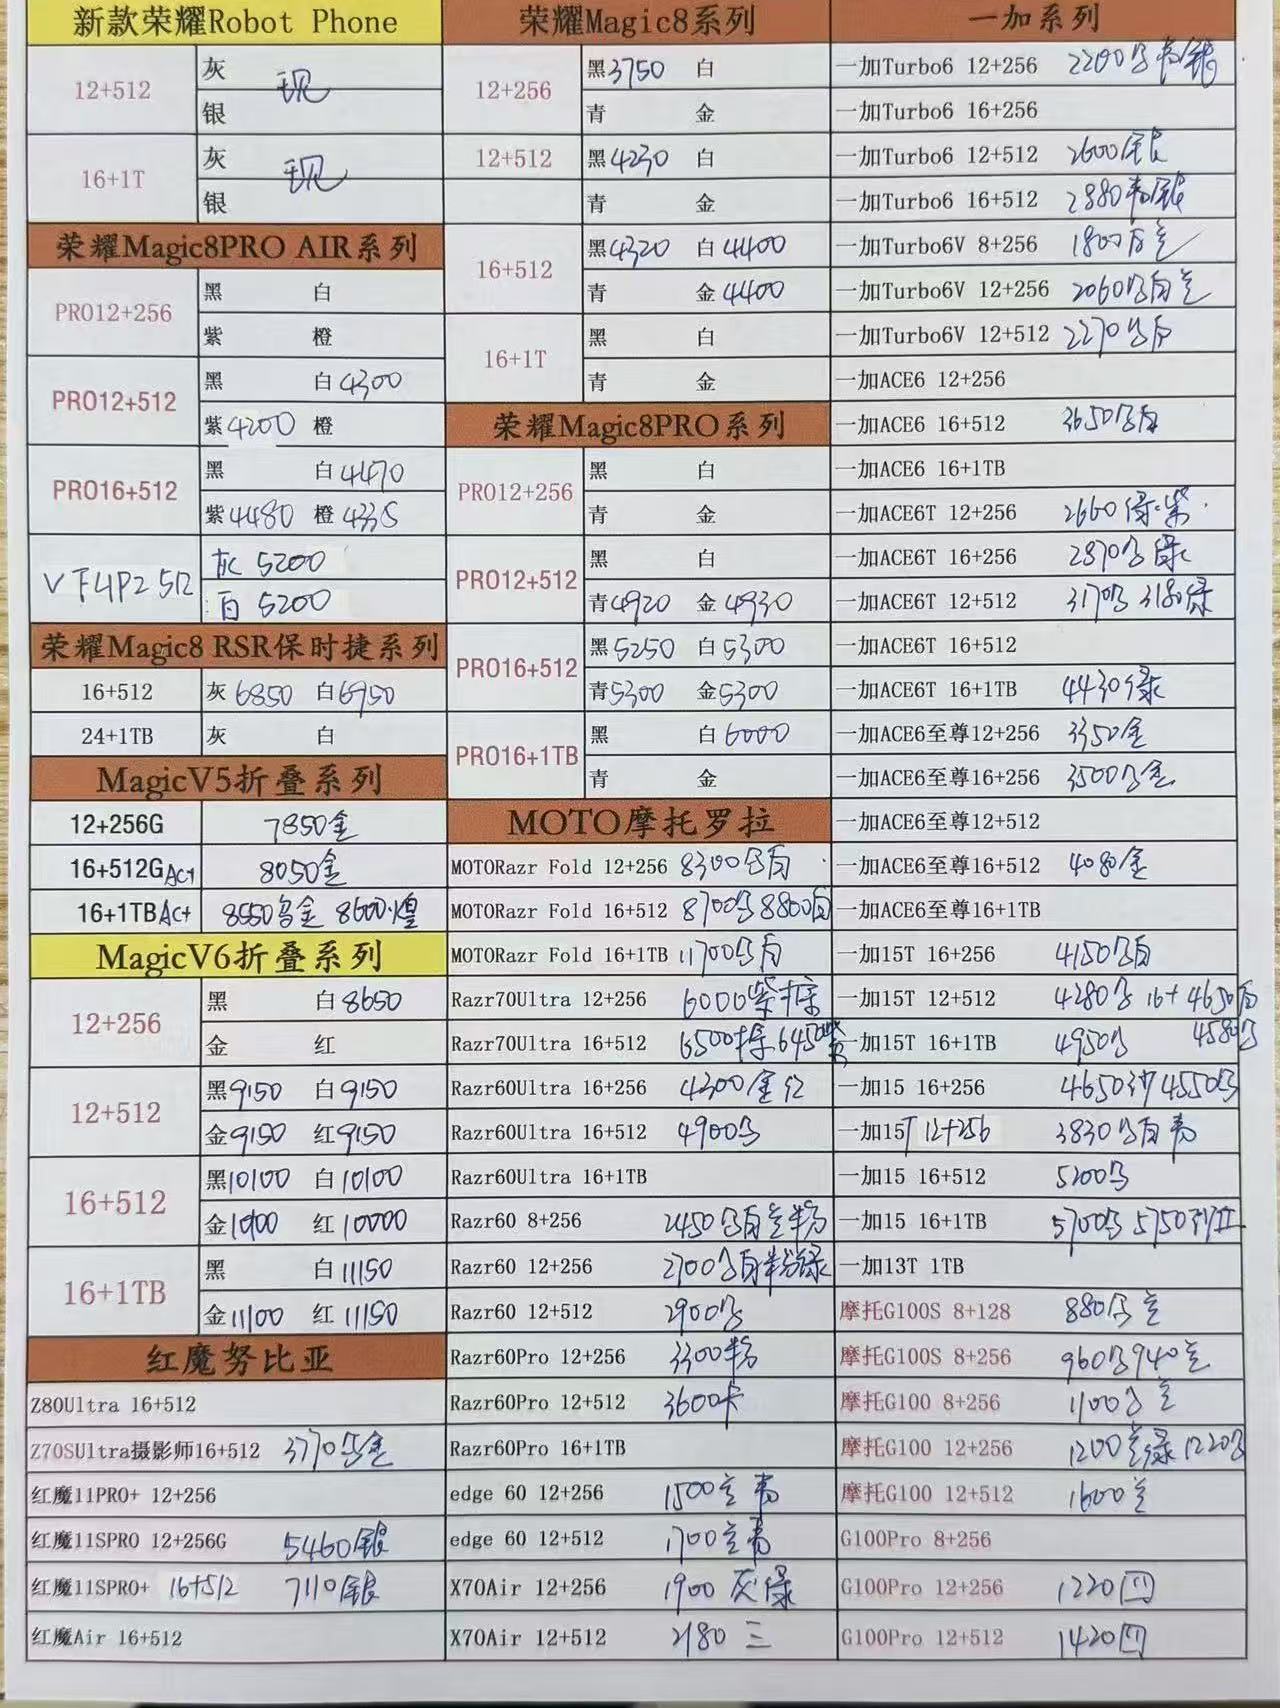 新款荣耀Robot Phone
12+512
灰 现
银
16+1T
灰 现
银
荣耀Magic8PRO AIR系列
PRO12+256
黑 白
紫 橙
PRO12+512
黑 白4300
紫4200 橙
PRO16+512
黑 白4470
紫4480 橙4335
VF4P2 512
灰 5200
白 5200
荣耀Magic8 RSR保时捷系列
16+512 灰6850 白6950
24+1TB 灰 白
MagicV5折叠系列
12+256G 7850金
16+512G Act 8050金
16+1TB Act 8550乌金 8600煌
MagicV6折叠系列
12+256
黑 白8650
金 红
12+512
黑9150 白9150
金9150 红9150
16+512
黑10100 白10100
金10100 红10000
16+1TB
黑 白11150
金11100 红11150
红魔努比亚
Z80Ultra 16+512
Z70SUltra摄影师16+512 3770乌金
红魔11PRO+ 12+256
红魔11SPRO 12+256G 5460银
红魔11SPRO+ 16+512 7110银
红魔Air 16+512
荣耀Magic8系列
12+256
黑3750 白
青 金
12+512
黑4230 白
青 金
16+512
黑4320 白4400
青 金4400
16+1T
黑 白
青 金
荣耀Magic8PRO系列
PRO12+256
黑 白
青 金
PRO12+512
黑 白
青4920 金4930
PRO16+512
黑5250 白5300
青5300 金5300
PRO16+1TB
黑 白6000
青 金
MOTO摩托罗拉
MOTORazr Fold 12+256 8300乌白
MOTORazr Fold 16+512 8700乌 8800白
MOTORazr Fold 16+1TB 11700乌白
Razr70Ultra 12+256 6000紫
Razr70Ultra 16+512 6500 6450紫
Razr60Ultra 16+256 4300金红
Razr60Ultra 16+512 4900乌
Razr60Ultra 16+1TB
Razr60 8+256 2450乌白兰粉
Razr60 12+256 2700乌白粉绿
Razr60 12+512 2900乌
Razr60Pro 12+256 3300粉
Razr60Pro 12+512 3600卡
Razr60Pro 16+1TB
edge 60 12+256 1500兰青
edge 60 12+512 1700兰青
X70Air 12+256 1900 灰绿
X70Air 12+512 2180 三
一加系列
一加Turbo6 12+256 2200乌青银
一加Turbo6 16+256
一加Turbo6 12+512 2600银
一加Turbo6 16+512 2880青银
一加Turbo6V 8+256 1800白兰
一加Turbo6V 12+256 2060乌白兰
一加Turbo6V 12+512 2270乌白
一加ACE6 12+256
一加ACE6 16+512 3650乌白
一加ACE6 16+1TB
一加ACE6T 12+256 2660绿.紫
一加ACE6T 16+256 2870乌绿
一加ACE6T 12+512 3170乌 3180绿
一加ACE6T 16+512
一加ACE6T 16+1TB 4430绿
一加ACE6至尊12+256 3350金
一加ACE6至尊16+256 3500乌金
一加ACE6至尊12+512
一加ACE6至尊16+512 4080金
一加ACE6至尊16+1TB
一加15T 16+256 4150乌白
一加15T 12+512 4280乌 16+ 4650白
一加15T 16+1TB 4950乌 4580乌
一加15 16+256 4650沙 4550乌
一加15T 12+256 3830乌白青
一加15 16+512 5200乌
一加15 16+1TB 5700乌 5750
一加13T 1TB
摩托G100S 8+128 880乌兰
摩托G100S 8+256 960乌940兰
摩托G100 8+256 1100乌兰
摩托G100 12+256 1200兰绿 1220乌
摩托G100 12+512 1600兰
G100Pro 8+256
G100Pro 12+256 1220四
G100Pro 12+512 1420四